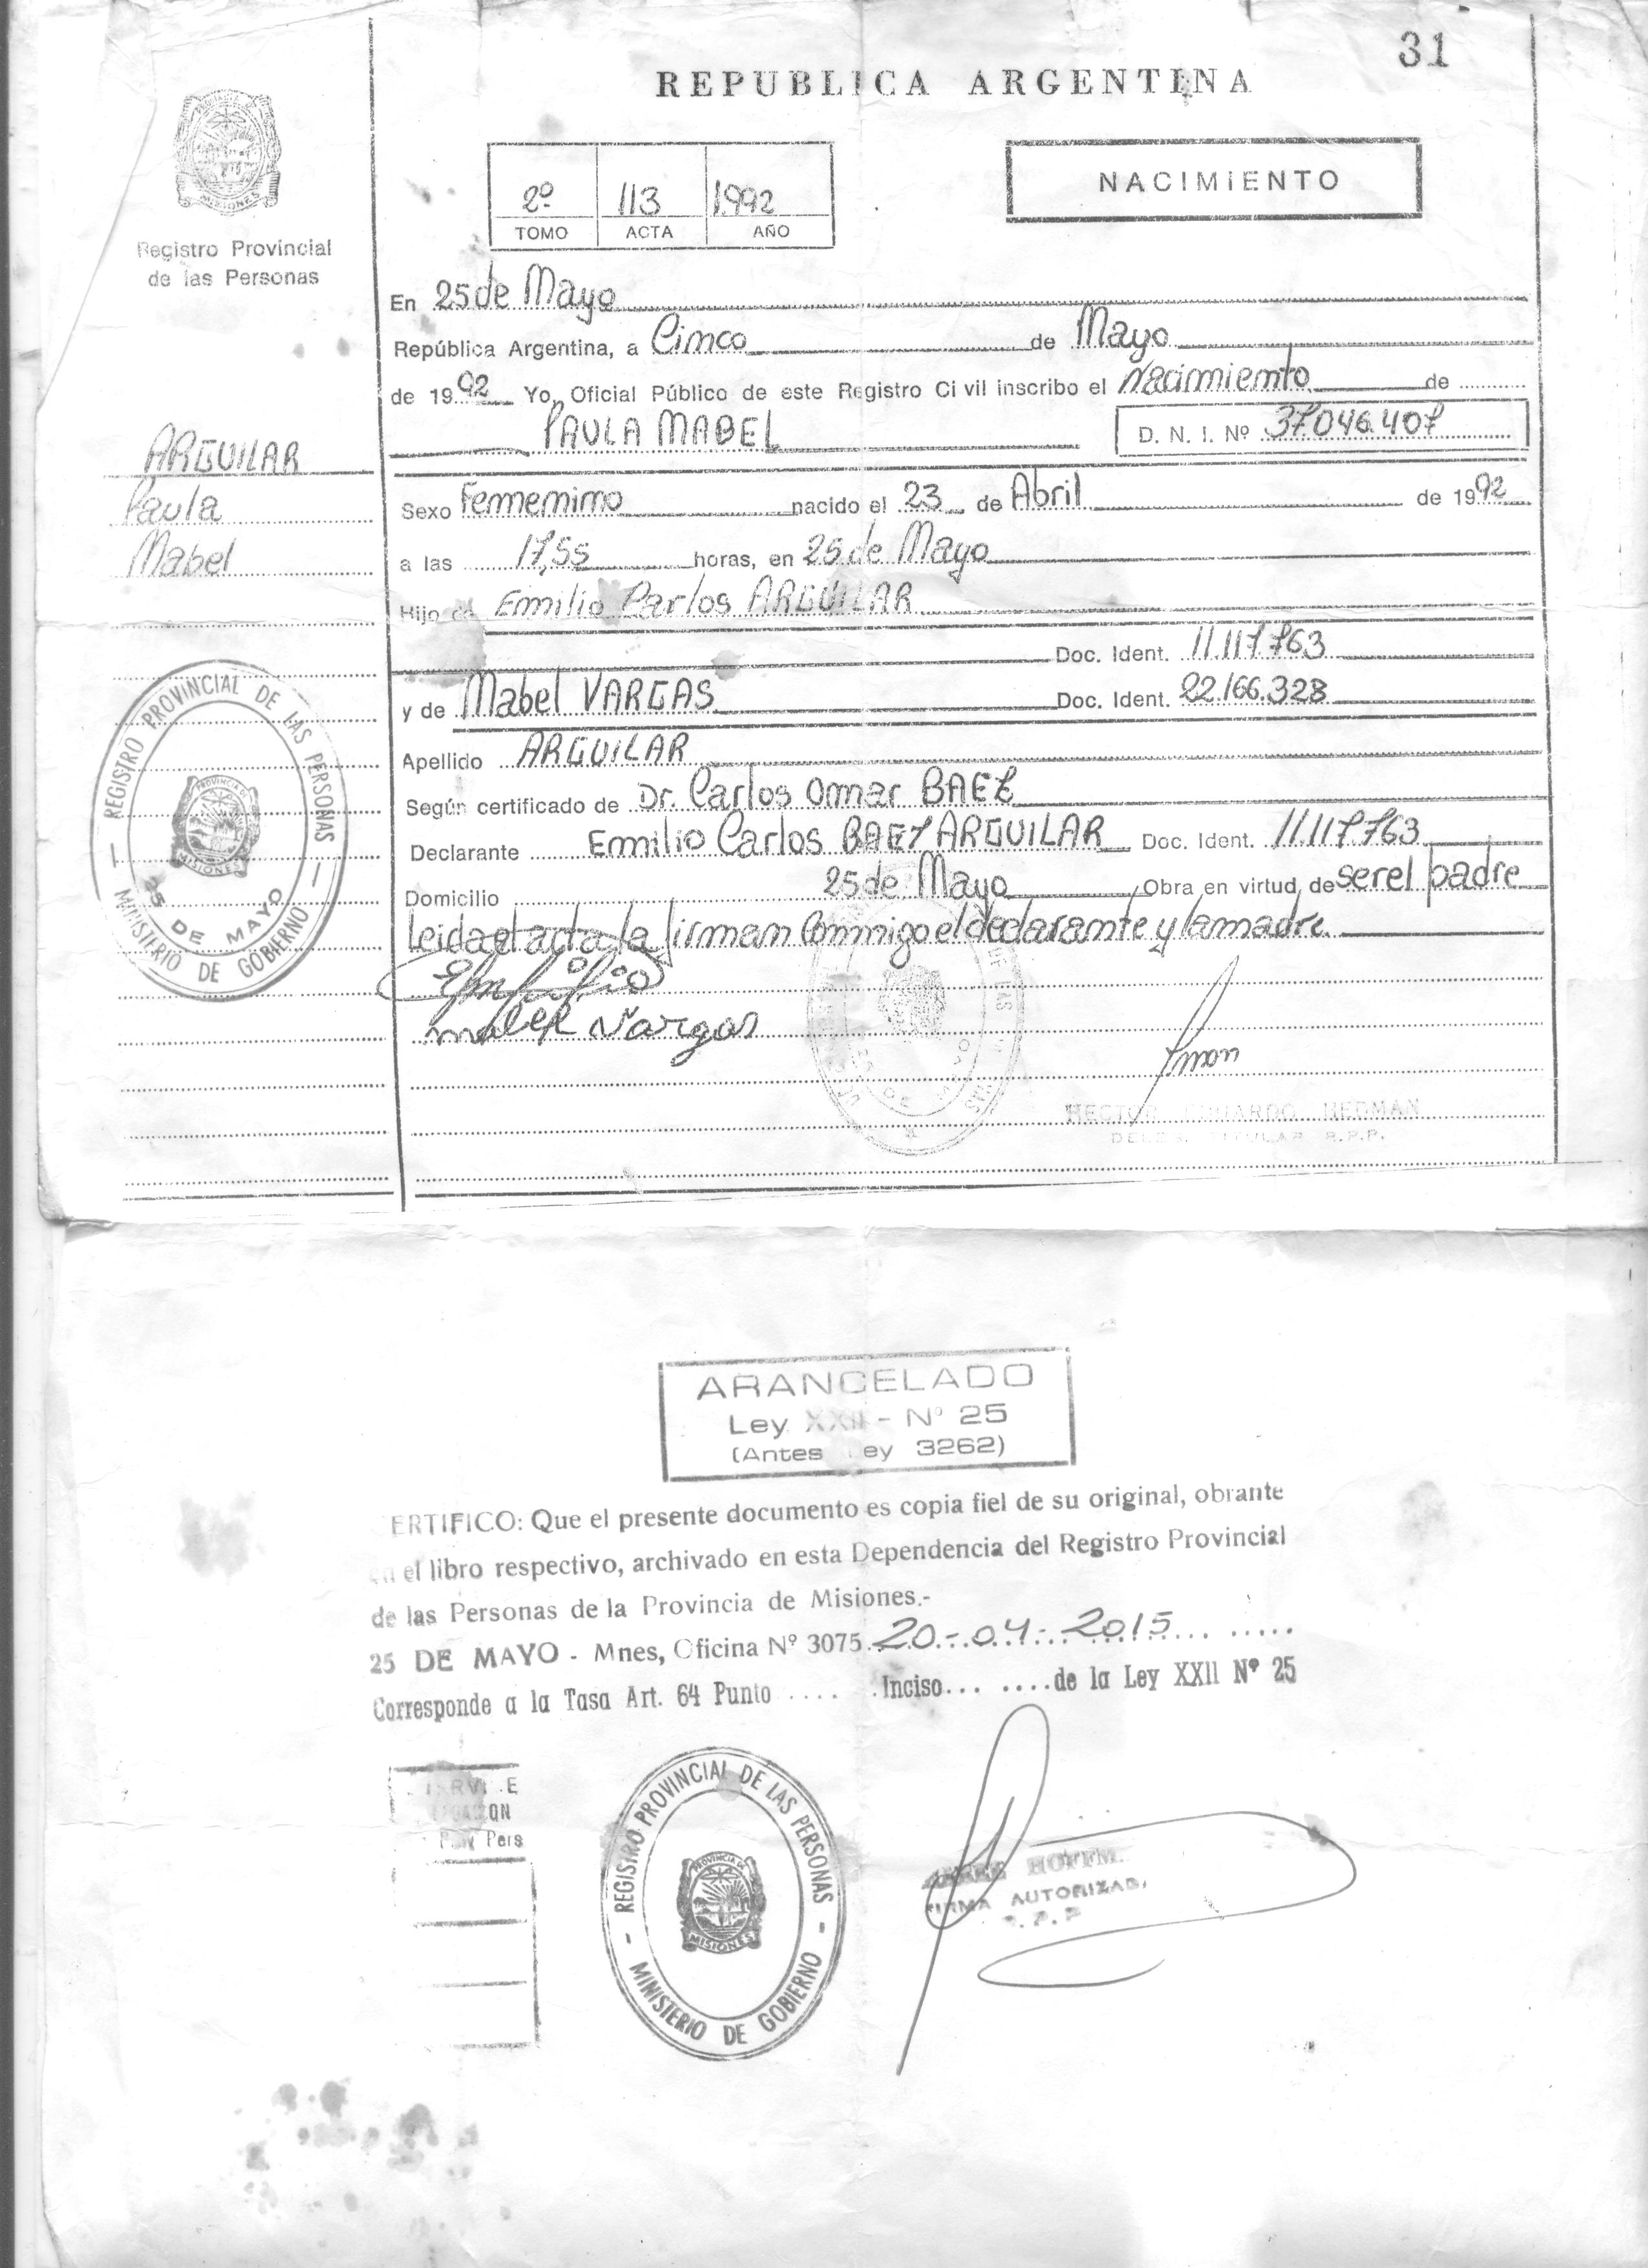 31
REPUBLICA ARGENTINA
MISIONES
Registro Provincial
de las Personas
2º 113 1992
TOMO ACTA AÑO
NACIMIENTO
En 25 de Mayo
República Argentina, a Cinco de Mayo
de 1992 Yo, Oficial Público de este Registro Civil inscribo el Nacimiento de
PAULA MABEL D. N. I. Nº 37.046.407
ARGUILAR
Paula
Mabel
Sexo Femenino nacido el 23 de Abril de 1992
a las 17,55 horas, en 25 de Mayo
Hijo de Emilio Carlos ARGUILAR
Doc. Ident. 11.117.763
y de Mabel VARGAS Doc. Ident. 22.166.328
Apellido ARGUILAR
Según certificado de Dr. Carlos Omar BAEZ
Declarante Emilio Carlos BAEZ ARGUILAR Doc. Ident. 11.117.763
Domicilio 25 de Mayo Obra en virtud de ser el padre
Leida el acta la firman conmigo el declarante y la madre
Mabel Vargas
REGISTRO PROVINCIAL DE LAS PERSONAS
PROVINCIA DE MISIONES
25 DE MAYO
MINISTERIO DE GOBIERNO
HECTOR EDUARDO NEUMAN
TITULAR R.P.P.
ARANCELADO
Ley XXII - Nº 25
(Antes Ley 3262)
ERTIFICO: Que el presente documento es copia fiel de su original, obrante
en el libro respectivo, archivado en esta Dependencia del Registro Provincial
de las Personas de la Provincia de Misiones.-
25 DE MAYO - Mnes, Oficina Nº 3075. 20-04-2015
Corresponde a la Tasa Art. 64 Punto .... .Inciso... ....de la Ley XXII Nº 25
Pers
REGISTRO PROVINCIAL DE LAS PERSONAS
PROVINCIA DE MISIONES
MINISTERIO DE GOBIERNO
HOFFM
FIRMA AUTORIZAD
R.P.P